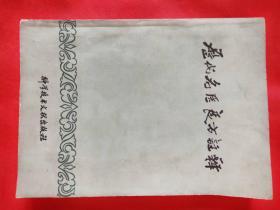 历代名医良方注释
科学技术文献出版社